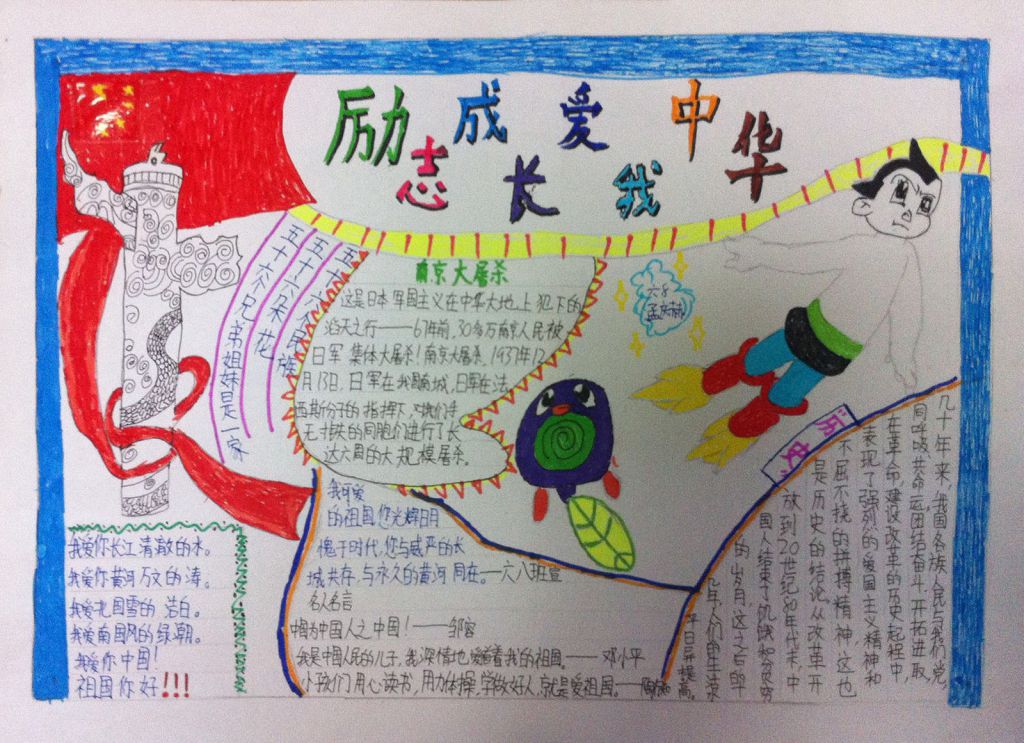 励志成长 爱我中华
五十六个民族
五十六朵花
五十六个兄弟姐妹是一家
南京大屠杀
这是日本军国主义在中华大地上犯下的
滔天之行——67年前,30多万南京人民被
日军集体大屠杀!南京大屠杀,1937年12
月13日,日军在我国南城,日军在法
西斯分子的指挥下,对我们手
无寸铁的同胞们进行了长
达六周的大规模屠杀。
六8
历史
几十年来,我国各族人民与我们党,
同呼吸,共命运,团结奋斗,开拓进取,
在革命,建设改革的历史起程中,
表现了强烈的爱国主义精神和
不屈不挠的拼搏精神,这也
是历史的结论,从改革开
放到20世纪80年代末,中
国人结束了饥饿和贫穷
的岁月,这之后的
几年人们的生活
平日异提高。
我可爱
的祖国,您光辉日月
愧于时代,您与威严的长
城共存,与永久的黄河同在。—六八班宣
名人名言
中国为中国人之中国!——邹容
我是中国人民的儿子,我深情地爱着我的祖国。——邓小平
小孩们用心读书,用力体操,学做好人,就是爱祖国。
我爱你长江清澈的水。
我爱你黄河万丈的涛。
我爱北国雪的洁白。
我爱南国风的绿潮。
我爱你中国!
祖国你好!!!